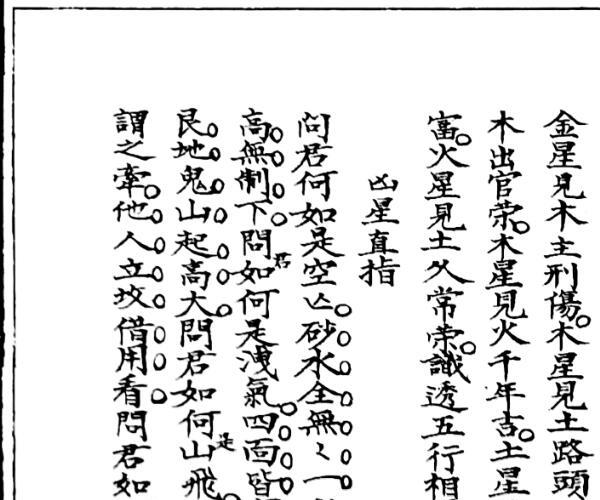 金星見木主刑傷木星見土路頭
木出官荣木星見火千年吉土星
富火星見土久常荣識透五行相
凶星直指
問君何如是空亡砂水全無〻一
高無制下問君如何是洩氣四面皆
艮地鬼山起高大問君如何是山飛
謂之牽他人立坟借用看問君如